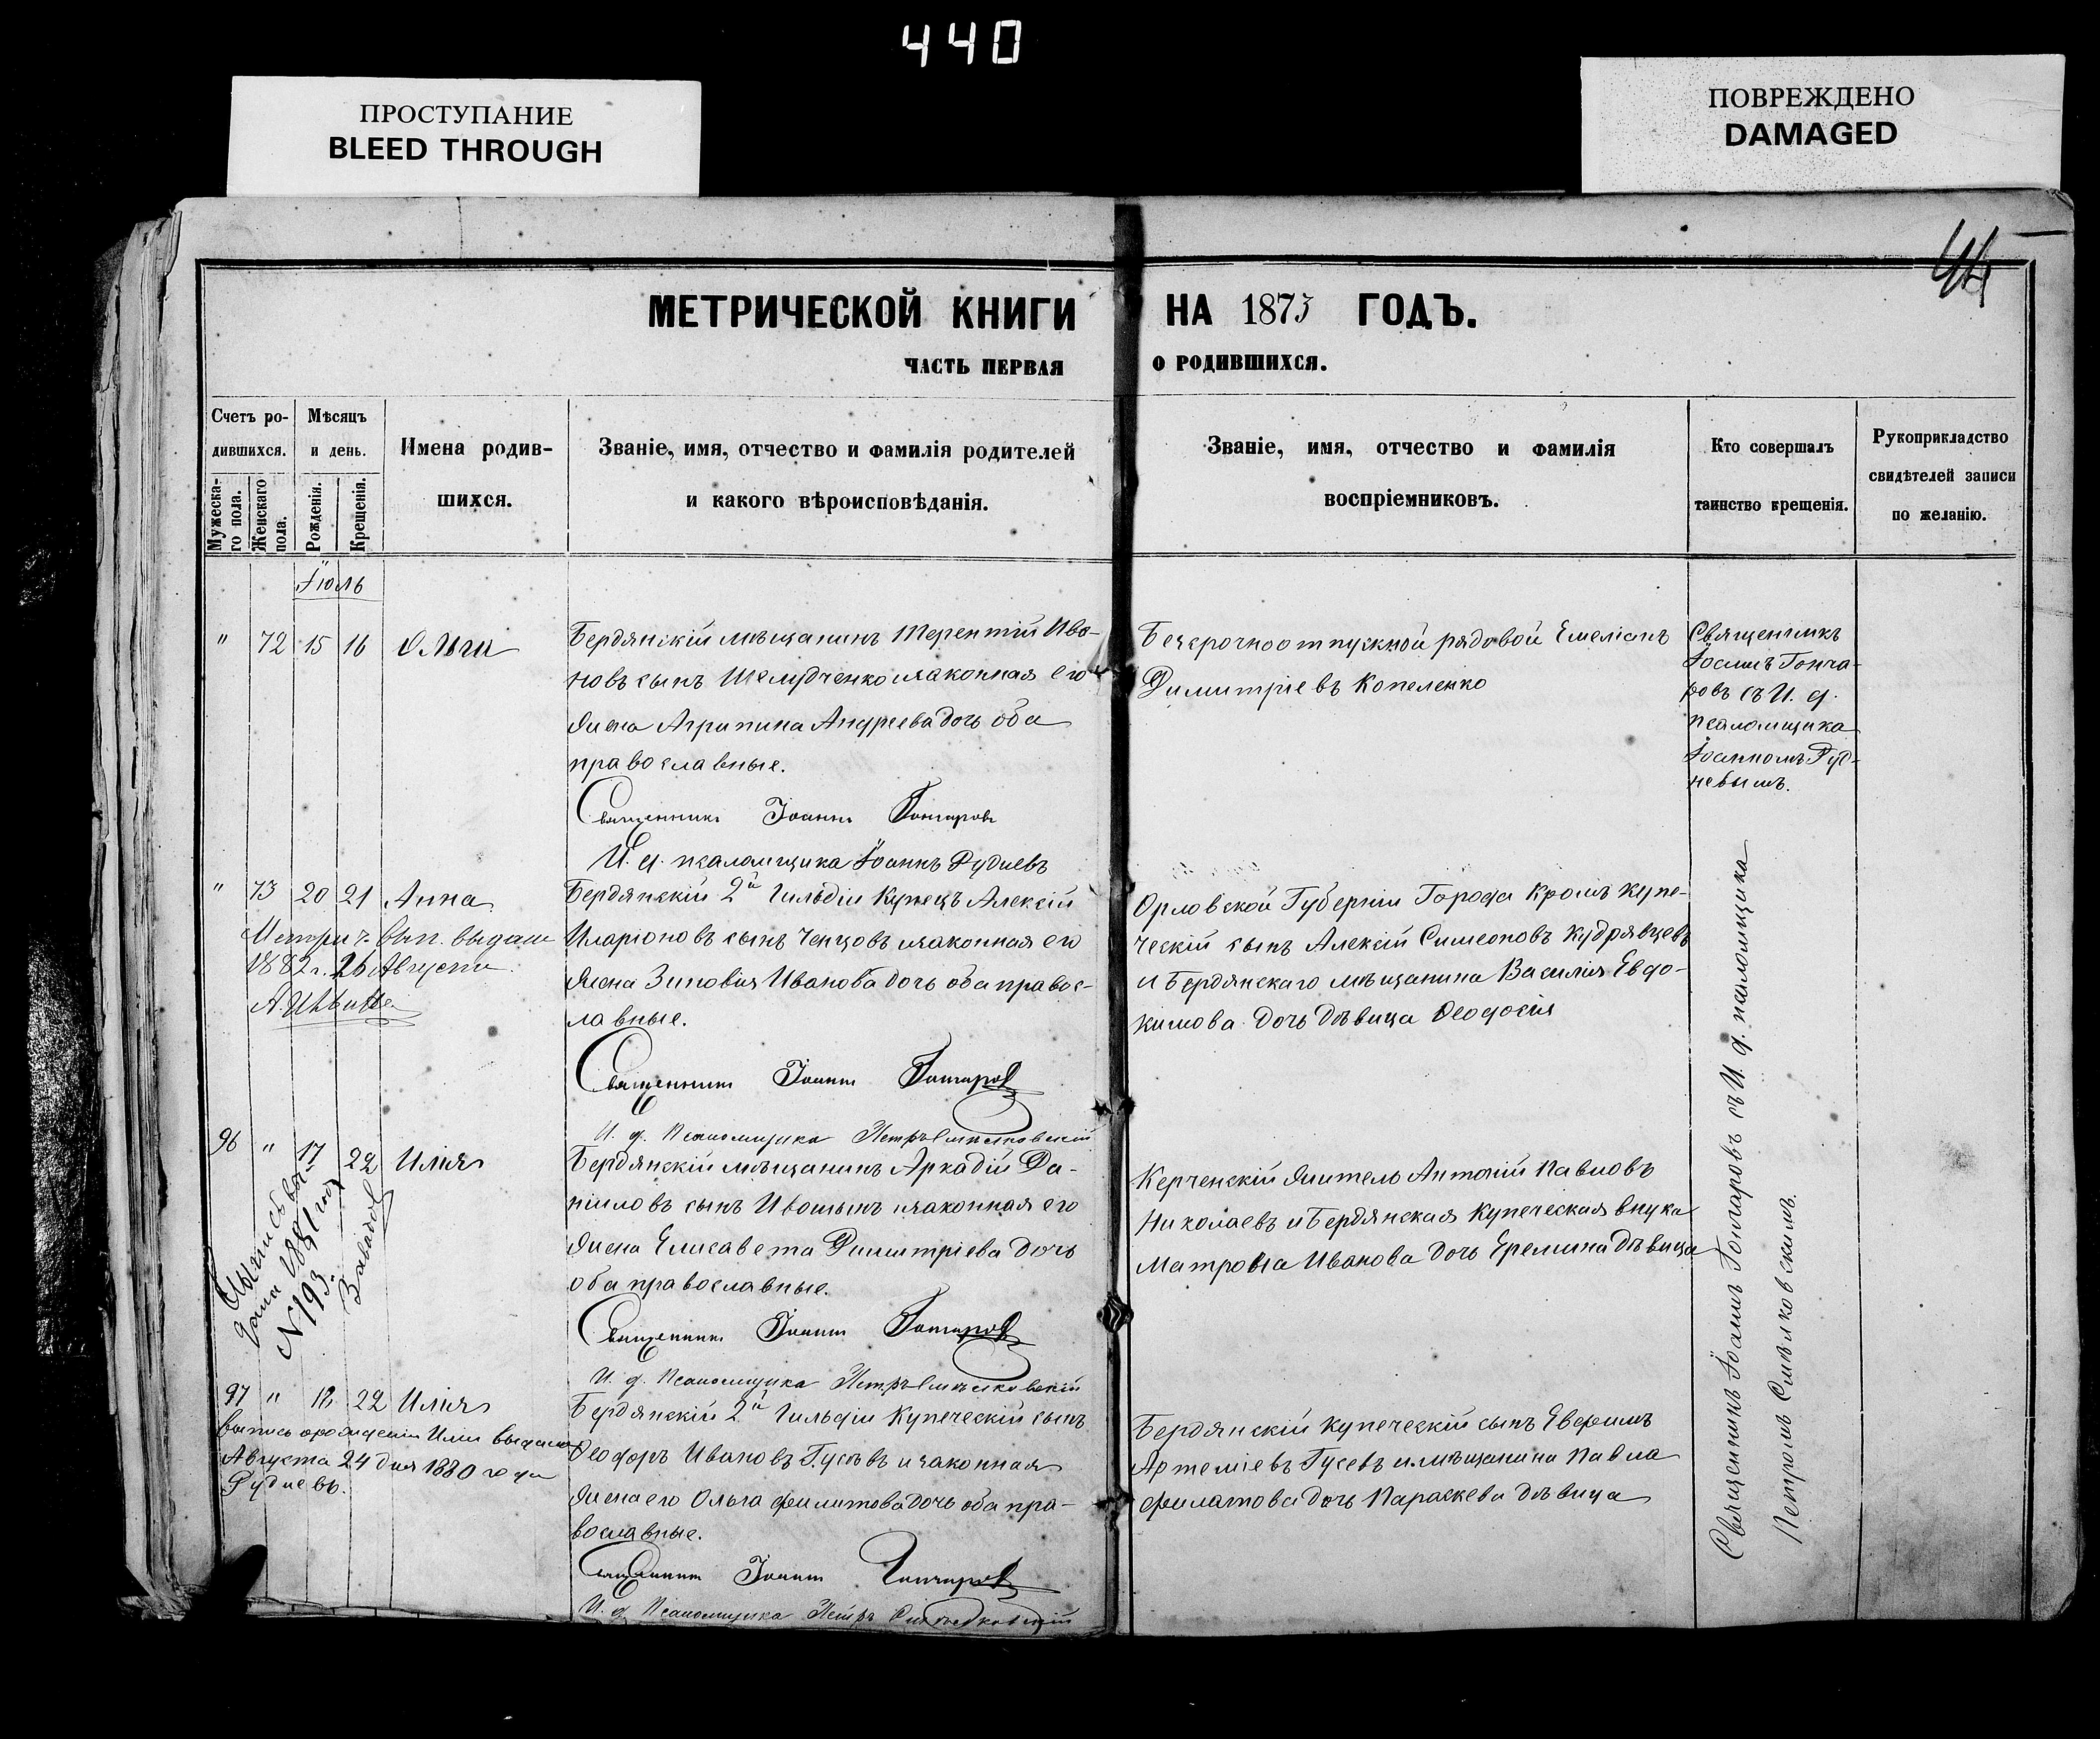 440
ПРОСТУПАНИЕ
BLEED THROUGH
ПОВРЕЖДЕНО
DAMAGED
44
МЕТРИЧЕСКОЙ КНИГИ НА 1873 ГОДЪ.
ЧАСТЬ ПЕРВАЯ О РОДИВШИХСЯ.
Счетъ ро-
дившихся.
Мужеска-
го пола.
Женскаго
пола.
Мѣсяцъ
и день.
Рожденія.
Крещенія.
Имена родив-
шихся.
Званіе, имя, отчество и фамилія родителей
и какого вѣроисповѣданія.
Званіе, имя, отчество и фамилія
воспріемниковъ.
Кто совершалъ
таинство крещенія.
Рукоприкладство
свидѣтелей записи
по желанію.
Іюль
" 72 15 16 Ольга
Бердянскій мѣщанинъ Терентій Ива-
новъ сынъ Шелудченко и законная его
жена Агрипина Андреева дочь оба
православные.
Священникъ Іоаннъ Гончаровъ
И. д. псаломщика Іоаннъ Рудневъ
Безсрочноотпускной рядовой Емеліанъ
Димитріевъ Копеленко
Священникъ
Іоаннъ Гонча-
ровъ съ И. д.
псаломщика
Іоанномъ Руд-
невымъ.
" 73 20 21 Анна
Метрич. вып. выдана
1882 г. 26 Августа
Бердянскій 2й Гильдіи Купецъ Алексій
Иларіоновъ сынъ Ченцовъ и законная его
жена Зиновия Иванова дочь оба правос-
лавные.
Священникъ Іоаннъ Гончаровъ
И. д. Псаломщика Петръ Смѣлковскій
Орловской Губерніи Города Кромъ купе-
ческій сынъ Алексій Симеоновъ Кудрявцевъ
и Бердянскаго мѣщанина Василія Евдо-
кимова дочь дѣвица Феодосія
96 " 17 22 Илія
дана 1881 году
N 193.
Бердянскій мѣщанинъ Аркадій Да-
ніиловъ сынъ Ивошинъ и законная его
жена Елисавета Димитріева дочь
оба православные.
Священникъ Іоаннъ Гончаровъ
И. д. Псаломщика Петръ Смѣлковскій
Керченскій житель Антоній Павловъ
Николаевъ и Бердянская Купеческая внука
Матрона Иванова дочь Еремина дѣвица
97 " 18 22 Илія
Выпись о рожденіи Иліи выдана
Августа 24 дня 1880 года
Рудневъ.
Бердянскій 2й Гильдіи Купеческій сынъ
Феодоръ Ивановъ Гусевъ и законная
жена его Ольга Филипова дочь оба пра-
вославные.
Священникъ Іоаннъ Гончаровъ
И. д. Псаломщика Петръ Смѣлковскій
Бердянскій купеческій сынъ Евфимъ
Артеміевъ Гусевъ и мѣщанина Павла
Филатова дочь Параскева дѣвица
Священникъ Іоаннъ Гончаровъ съ И. д. псаломщика
Петромъ Смѣлковскимъ.